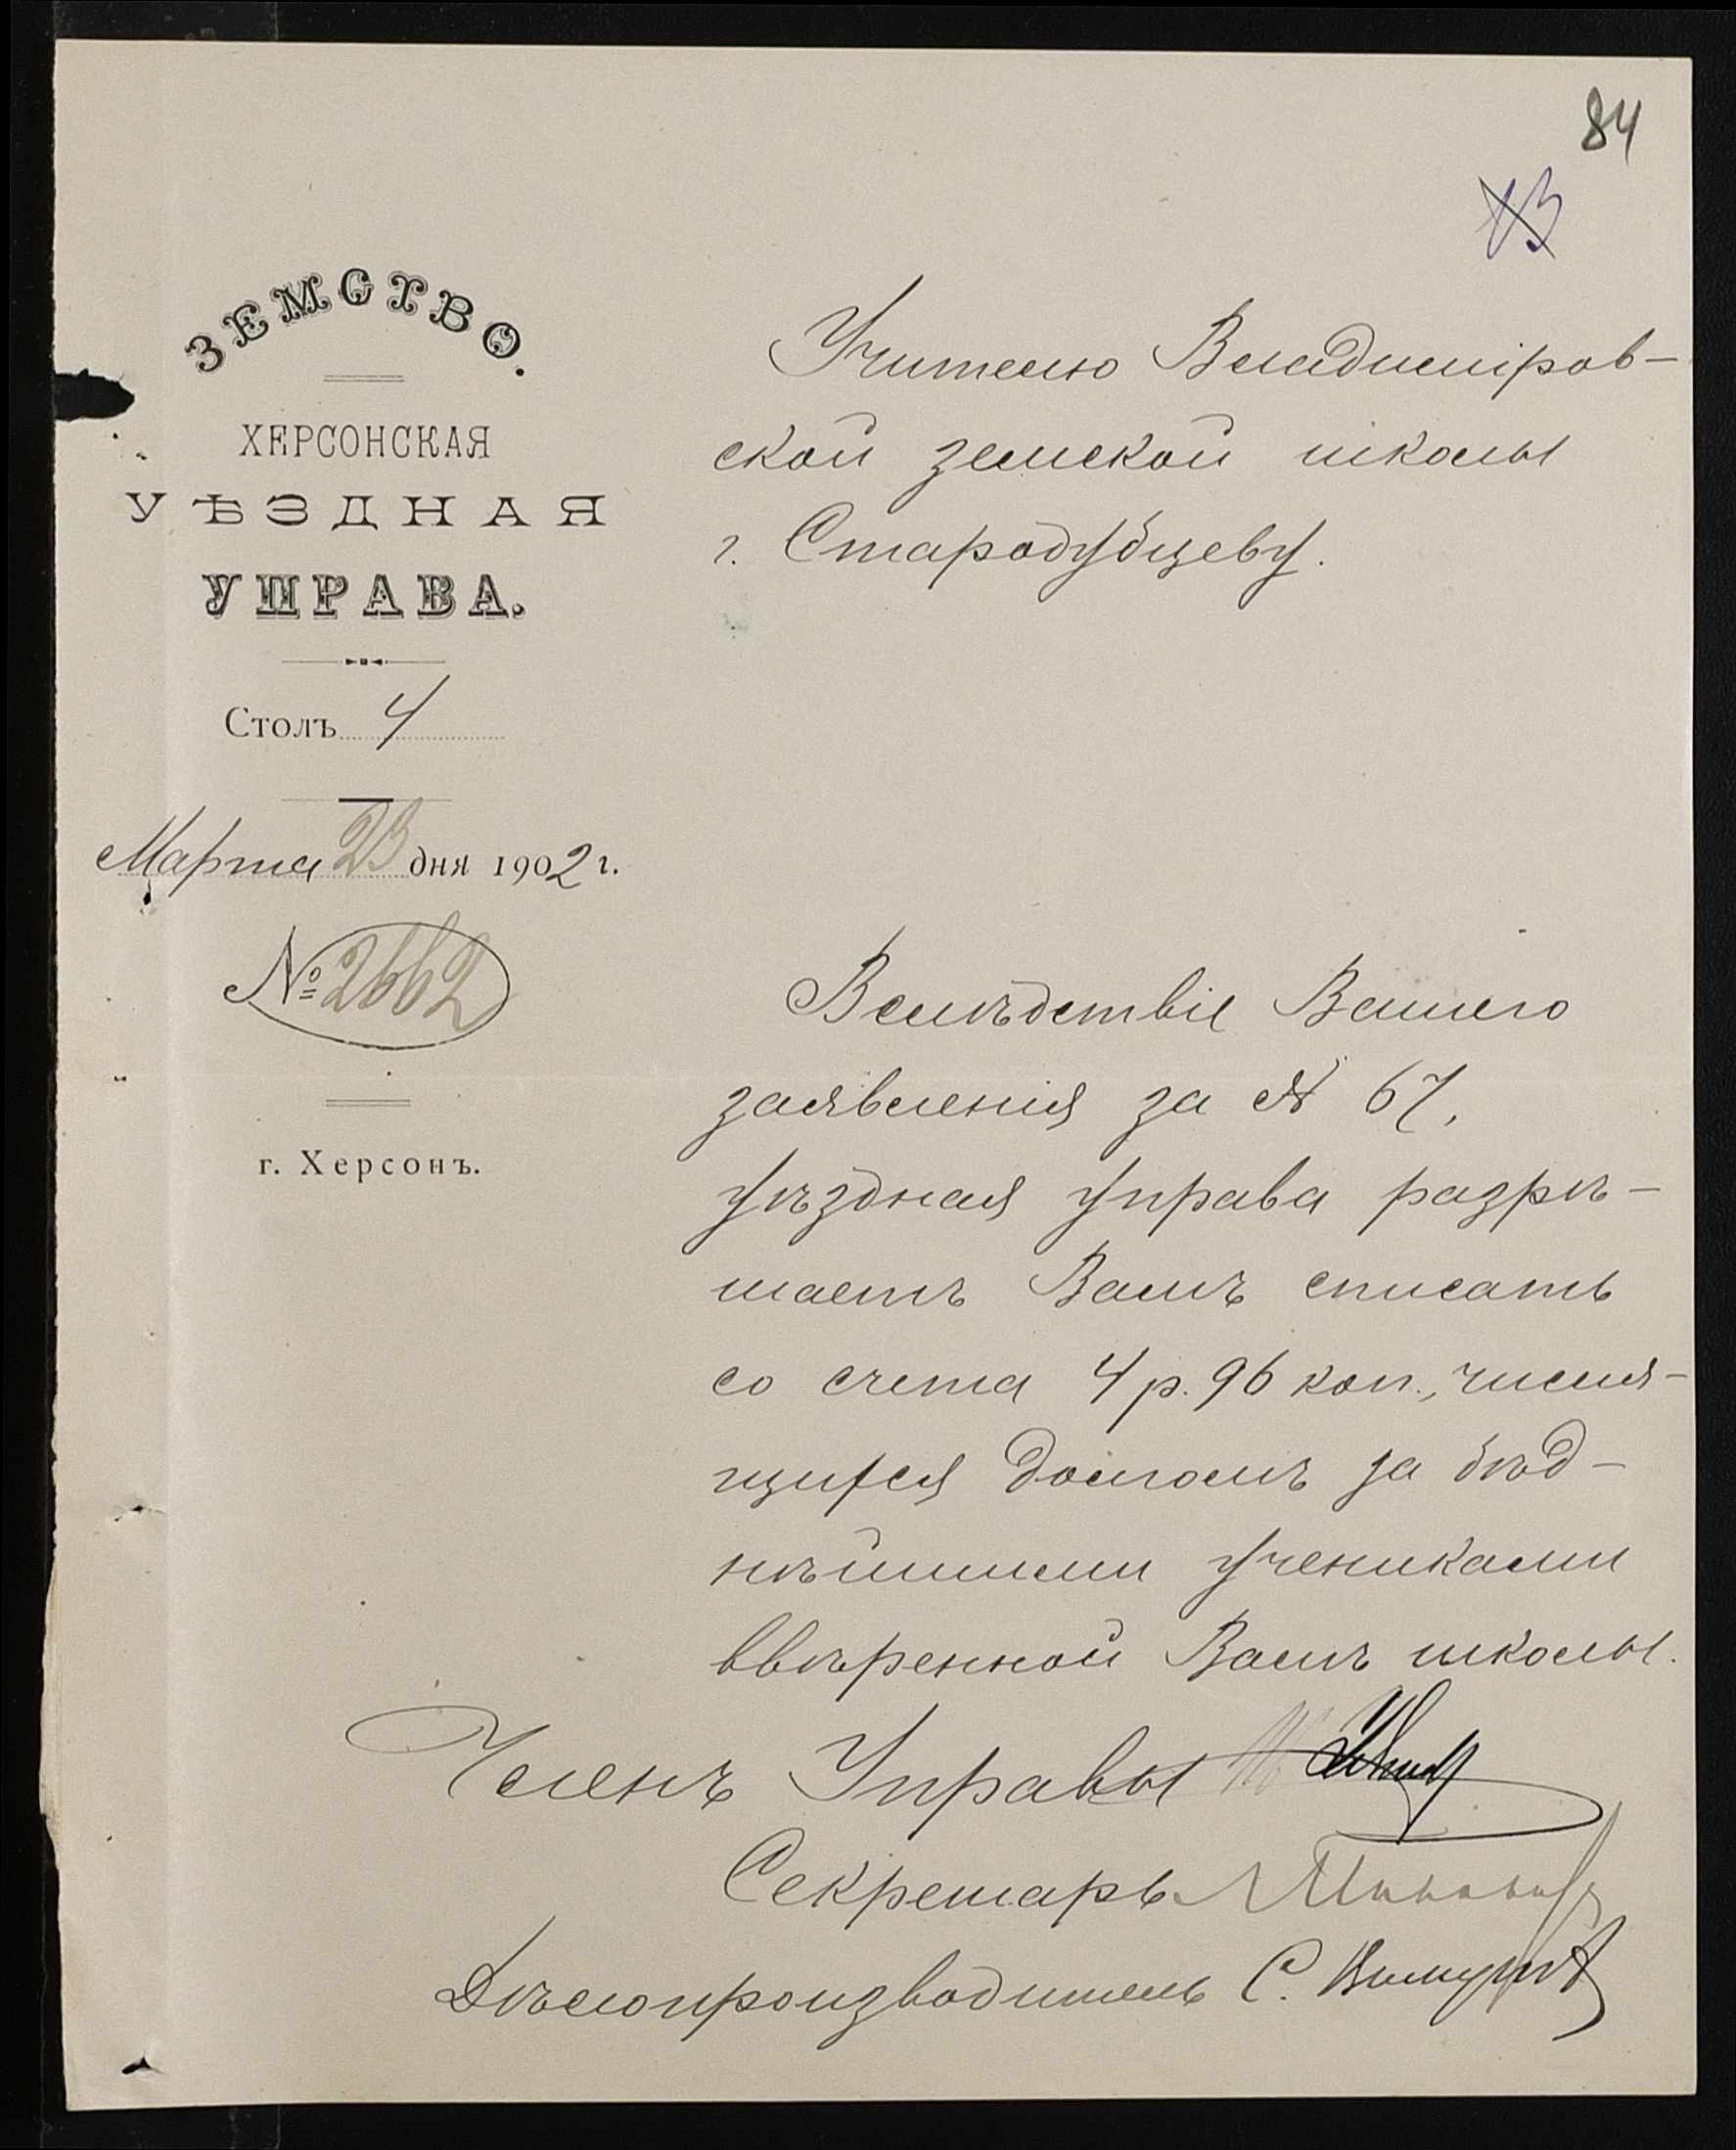 84
ЗЕМСТВО.
ХЕРСОНСКАЯ
УѢЗДНАЯ
УПРАВА.
Столъ 4
Марта 23 дня 1902 г.
№ 2662
г. Херсонъ.
Учителю Владимiров-
ской земской школы
г. Стародубцеву.
Вслѣдствiе Вашего
заявленiя за № 67,
уѣздная управа разрѣ-
шаетъ Вамъ списать
со счета 4 р. 96 коп., числя-
щихся долгомъ за бѣд-
нѣйшими учениками
ввѣренной Вамъ школы.
Членъ Управы
Секретарь
Дѣлопроизводитель С.